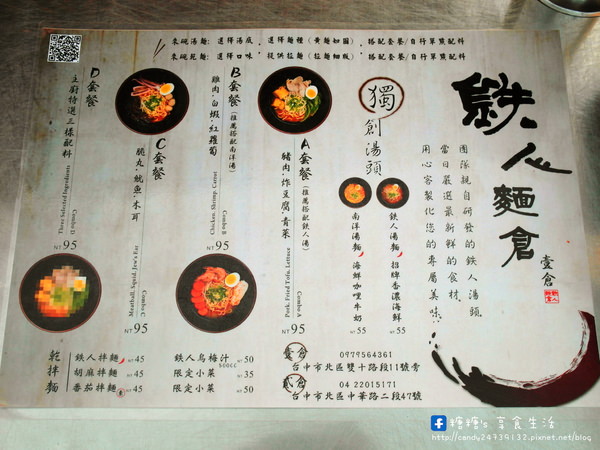 來碗湯麵：選擇湯底．選擇麵種(黃麵如圖)．搭配套餐/自行單點配料
來碗乾麵：選擇口味．提供拉麵(拉麵細版)．搭配套餐/自行單點配料
鉄人麵倉
壹倉
團隊親自研發的鉄人湯頭
當日嚴選最新鮮的食材
用心客製化您的專屬美味
獨創湯頭
鉄人湯麵 招牌香濃海鮮
NT 55
南洋湯麵 海鮮咖哩牛奶
NT 55
A套餐(推薦搭配鉄人湯)
豬肉．炸豆腐．青菜
Combo A
Pork, Fried Tofu, Lettuce
NT 95
B套餐(推薦搭配南洋湯)
雞肉．白蝦．紅蘿蔔
Combo B
Chicken, Shrimp, Carrot
NT 95
C套餐
脆丸．魷魚．木耳
Combo C
Meatball, Squid, Jew's Ear
NT 95
D套餐
主廚特選三樣配料
Combo D
Three Selected Ingredients
NT 95
乾拌麵
鉄人拌麵 NT 45
胡麻拌麵 NT 45
番茄拌麵 NT 45
鉄人烏梅汁 500cc NT 50
限定小菜 NT 35
限定小菜 NT 50
壹倉 0979564361
台中市北區雙十路段11號旁
貳倉 04 22015171
台中市北區中華路二段47號
糖糖's 享食生活
http://candy24739132.pixnet.net/blog